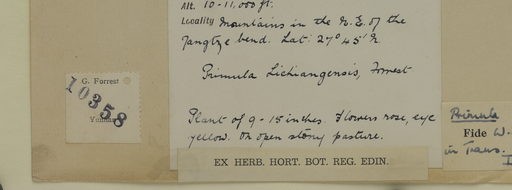 Alt. 10-11,000 ft.
Locality Mountains in the N.E. of the
Yangtze bend. Lat. 27° 45' N.
Primula Lichiangensis, Forrest
Plant of 9-15 inches. Flowers rose, eye
yellow. On open stony pasture.
EX HERB. HORT. BOT. REG. EDIN.
G. Forrest
10358
Primula
Fide W.
in Trans.